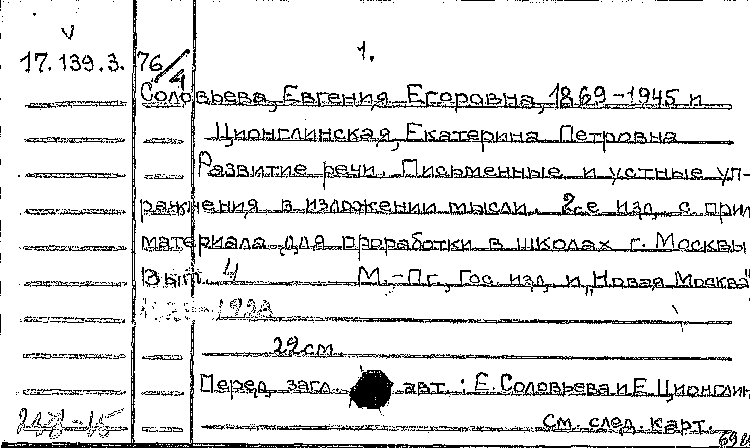 V
1.
17.139.3. 76/4
Соловьева, Евгения Егоровна, 1869-1945 и
Ционглинская, Екатерина Петровна
Развитие речи. Письменные и устные уп-
ражнения в изложении мысли. 2-е изд. с прил
материала для проработки в школах г. Москвы
Вып. 4 М.-Пг., Гос. изд. и „Новая Москва"
1923
22см.
Перед загл. авт.: Е. Соловьева и Е. Ционглин
см. след. карт.